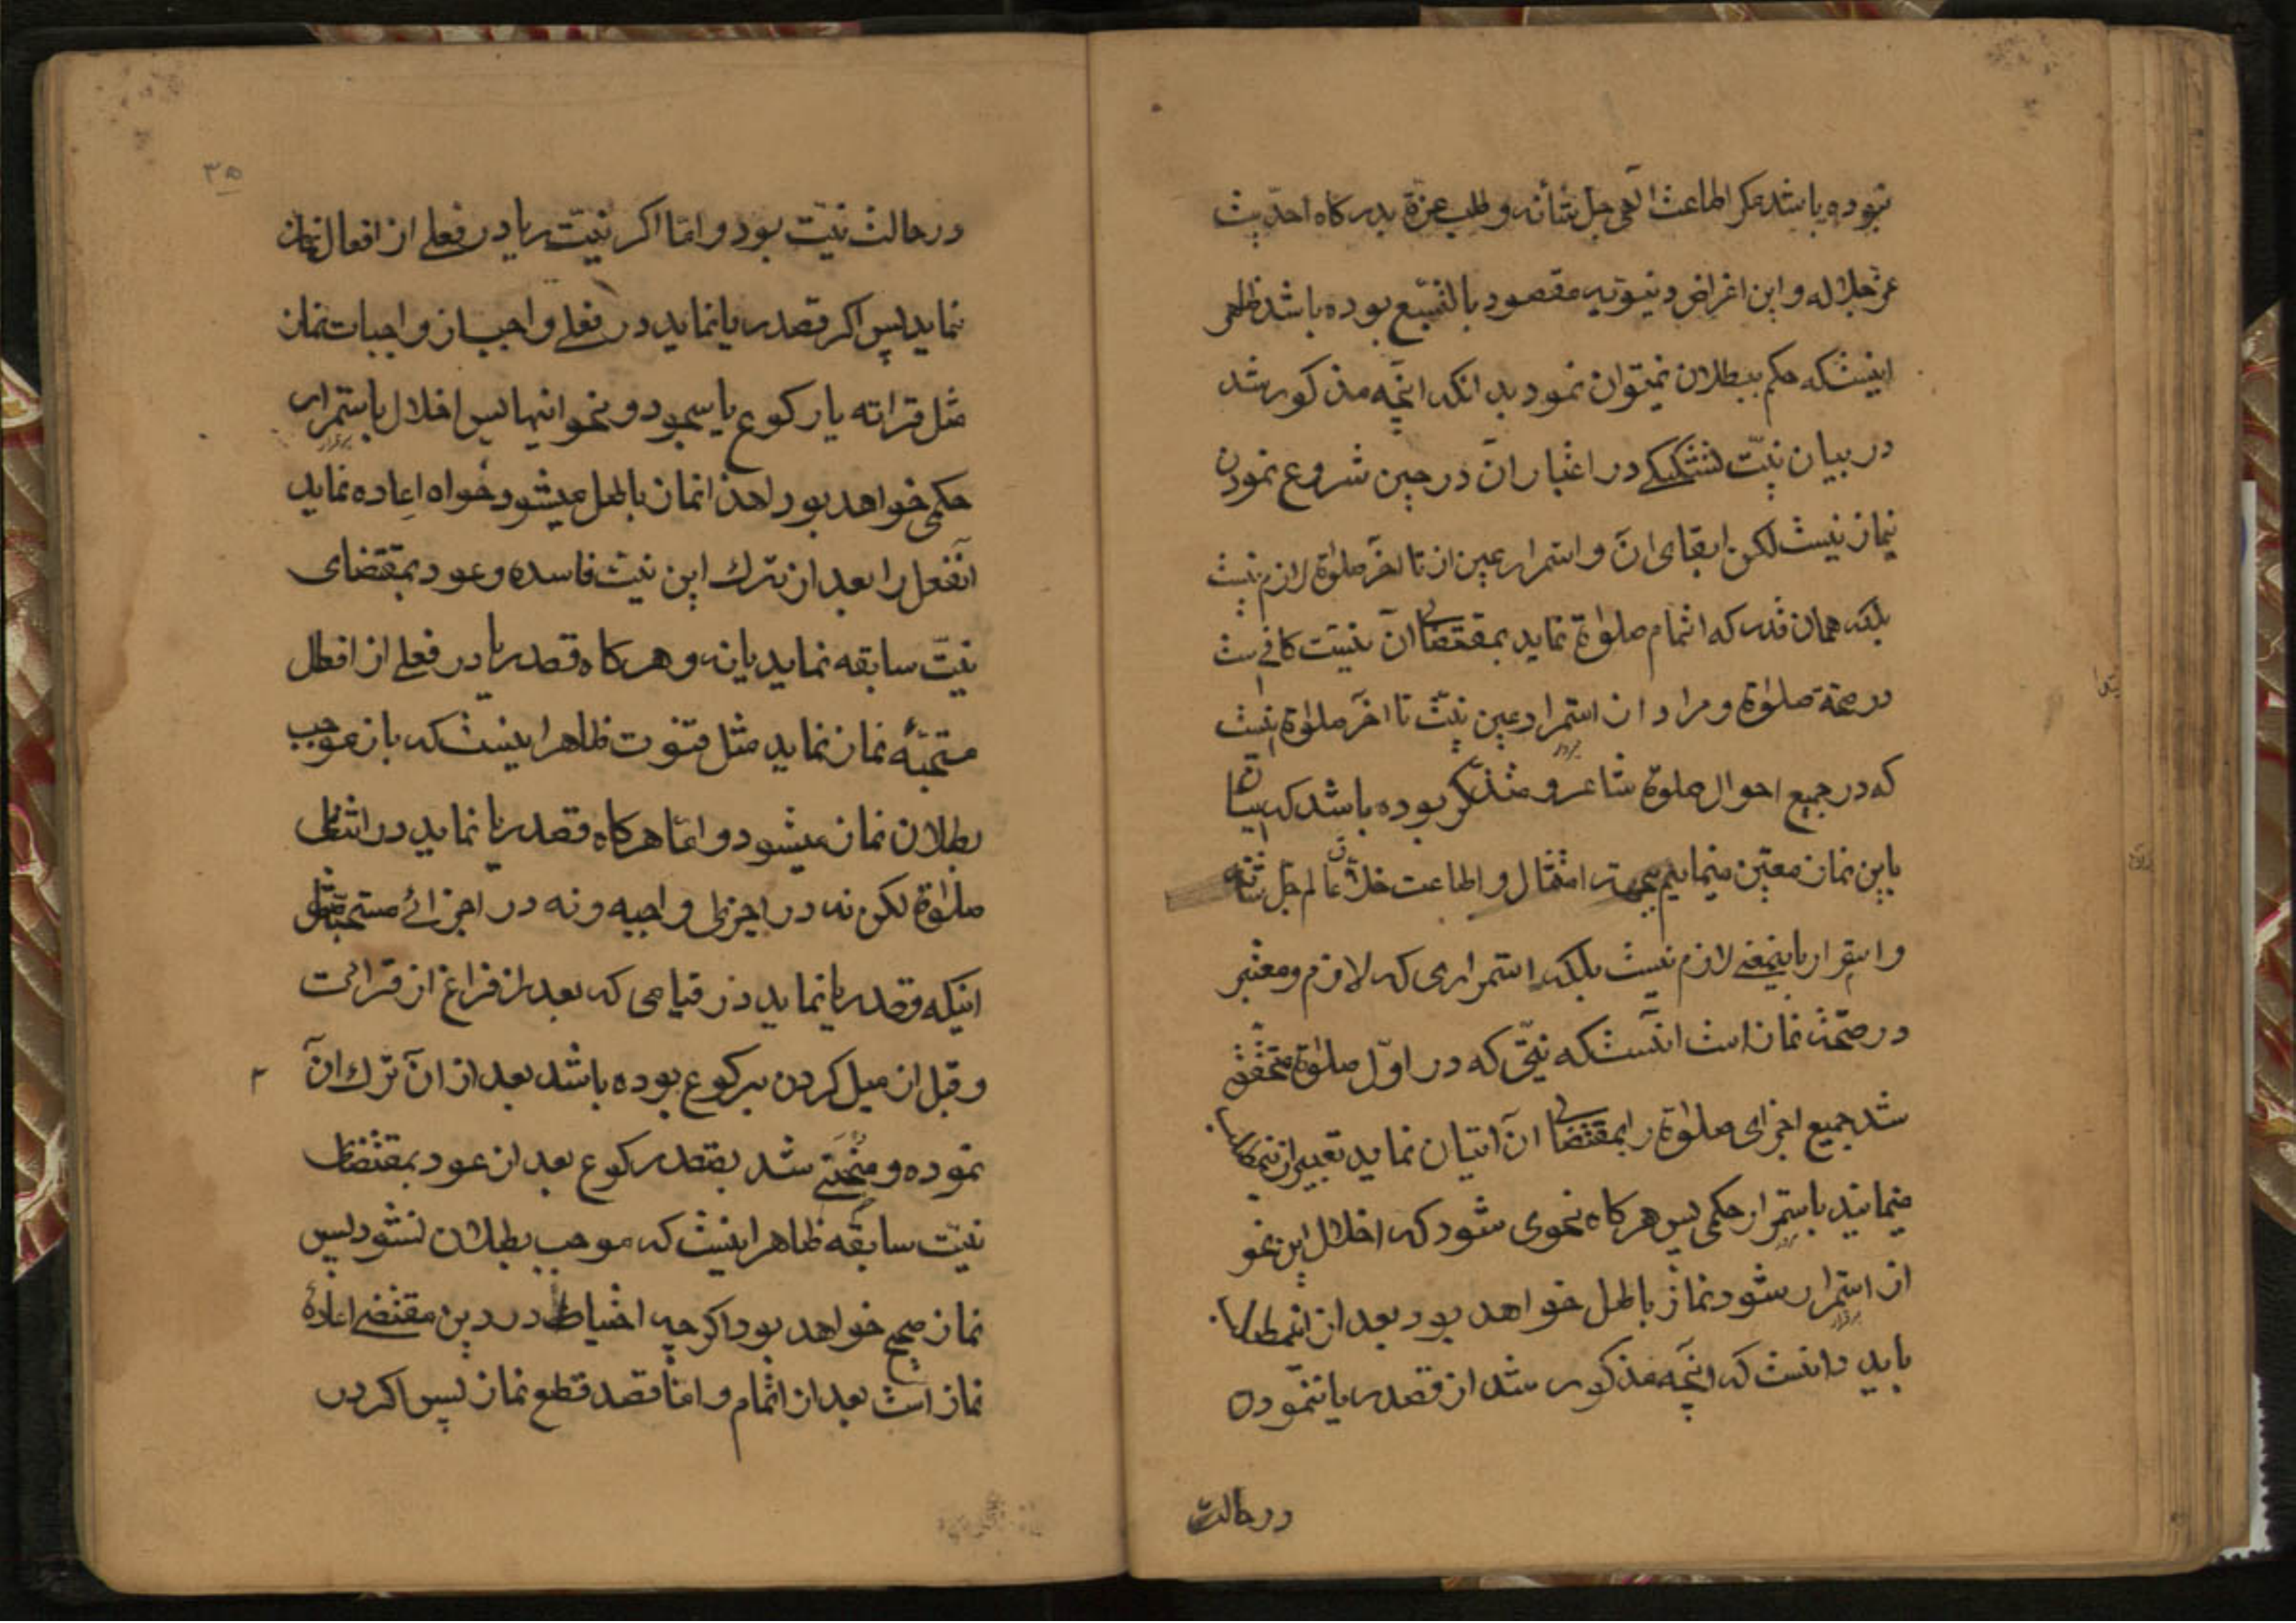 نبوده باشد مکر اطاعت الهی جل شأنه و طلب عزة بدرکاه احدیت
عز جلاله و این اغراض دنیویه مقصود بالتبع بوده باشد ظاهر
اینستکه حکم ببطلان نمیتوان نمود بدانکه انچه مذکور شد
در بیان نیّت تشکیکی در اعتبار آن در حین شروع نمودن
بنماز نیست لکن ابقای آن و استمرار عین ان تا آخر صلوة لازم نیست
بلکه همان قدر که اتمام صلوة نماید بمقتضای آن نیت کافیست
در صحة صلوة و مراد از استمرار عین نیّت تا آخر صلوة اینست
که در جمیع احوال صلوة شاعر و متذکر بوده باشد که اتیان
باین نماز معیّن مینمایم بجهة امتثال و اطاعت خلاق عالم جل شأنه
و استمرار باینمعنی لازم نیست بلکه استمراری که لازم و معتبر
در صحّت نماز است انستکه نیّتی که در اوّل صلوة متحقق
شد جمیع اجزای صلوة را بمقتضای آن اتیان نماید تعبیر از
مینمایند باستمرار حکمی پس هرکاه نحوی شود که اخلال این نحو
از استمرار شود نماز باطل خواهد بود بعد از
باید دانست که انچه مذکور شد از قصد ریا ننموده
در حالت
۳۵
در حالت نیّت بود و امّا اکر نیّت ریا در فعلی از افعال نماز
نماید پس اکر قصد ریا نماید در فعلی واجب از واجبات نماز
مثل قرائه یا رکوع یا سجود و نحو اینها پس اخلال باستمرار
حکمی خواهد بود لهذا نماز باطل میشود خواه اعاده نماید
آنفعل را بعد از ترك این نیت فاسده و عود بمقتضای
نیّت سابقه نماید یا نه و هرکاه قصد ریا در فعلی از افعال
مستحبّه نماز نماید مثل قنوت ظاهر اینستکه باز موجب
بطلان نماز میشود و امّا هرکاه قصد ریا نماید در اثنای
صلوة لکن نه در اجزای واجبه و نه در اجزائ مستحبّه مثل
اینکه قصد ریا نماید در قیامی که بعد از فراغ از قرائت
و قبل از میل کردن برکوع بوده باشد بعد از آن ترك آن
نموده و منحنی شد بقصد رکوع بعد از عود بمقتضای
نیّت سابقه ظاهر اینست که موجب بطلان نشود پس
نماز صحیح خواهد بود اکرچه احتیاط در دین مقتضی اعادهٔ
نماز است بعد از اتمام و امّا قصد قطع نماز پس اکر در